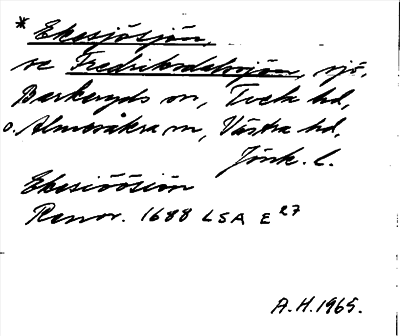 * Ekesjösjön,
se Fredriksdalssjön, sjö,
Barkeryds sn, Tveta hd,
o. Almesåkra sn, Västra hd,
Jönk. l.
Ekesiöösiön
Rannr. 1688 LSA E 27
A.H. 1965.